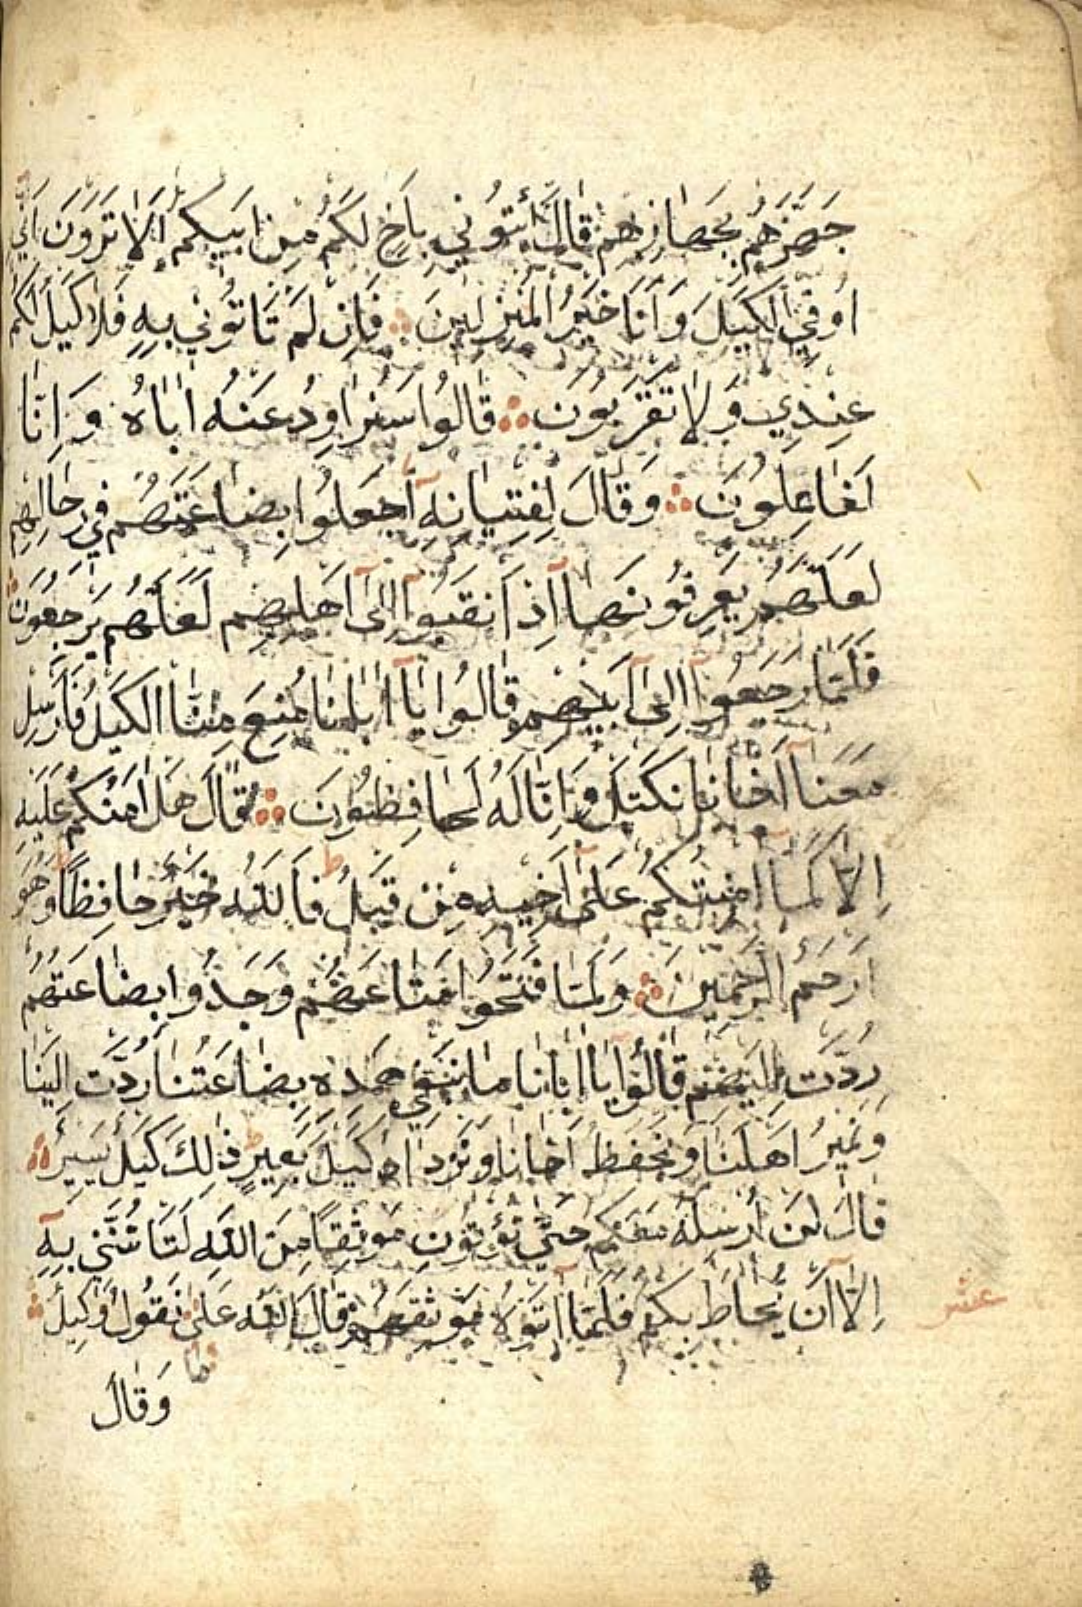 جَهَّزَهُمْ بِجَهَازِهِمْ قَالَ ائْتُونِي بِأَخٍ لَكُمْ مِنْ اَبِيكُمْ اَلَا تَرَوْنَ اَنِّي
اُوفِي الْكَيْلَ وَاَنَا خَيْرُ الْمُنْزِلِينَ فَاِنْ لَمْ تَاْتُونِي بِهِ فَلَا كَيْلَ لَكُمْ
عِنْدِي وَلَا تَقْرَبُونِ قَالُوا سَنُرَاوِدُ عَنْهُ اَبَاهُ وَاِنَّا
لَفَاعِلُونَ وَقَالَ لِفِتْيَانِهِ اجْعَلُوا بِضَاعَتَهُمْ فِي رِحَالِهِمْ
لَعَلَّهُمْ يَعْرِفُونَهَا اِذَا انْقَلَبُوا اِلٰى اَهْلِهِمْ لَعَلَّهُمْ يَرْجِعُونَ
فَلَمَّا رَجَعُوا اِلٰى اَبِيهِمْ قَالُوا يَا اَبَانَا مُنِعَ مِنَّا الْكَيْلُ فَاَرْسِلْ
مَعَنَا اَخَانَا نَكْتَلْ وَاِنَّا لَهُ لَحَافِظُونَ قَالَ هَلْ اٰمَنُكُمْ عَلَيْهِ
اِلَّا كَمَا اَمِنْتُكُمْ عَلٰى اَخِيهِ مِنْ قَبْلُ فَاللّٰهُ خَيْرٌ حَافِظًا وَهُوَ
اَرْحَمُ الرَّاحِمِينَ وَلَمَّا فَتَحُوا مَتَاعَهُمْ وَجَدُوا بِضَاعَتَهُمْ
رُدَّتْ اِلَيْهِمْ قَالُوا يَا اَبَانَا مَا نَبْغِي هٰذِهِ بِضَاعَتُنَا رُدَّتْ اِلَيْنَا
وَنَمِيرُ اَهْلَنَا وَنَحْفَظُ اَخَانَا وَنَزْدَادُ كَيْلَ بَعِيرٍ ذٰلِكَ كَيْلٌ يَسِيرٌ
قَالَ لَنْ اُرْسِلَهُ مَعَكُمْ حَتّٰى تُؤْتُونِ مَوْثِقًا مِنَ اللّٰهِ لَتَاْتُنَّنِي بِهِ
اِلَّا اَنْ يُحَاطَ بِكُمْ فَلَمَّا اٰتَوْهُ مَوْثِقَهُمْ قَالَ اللّٰهُ عَلٰى نَقُولُ وَكِيلٌ
عشر
ما
وَقَالَ